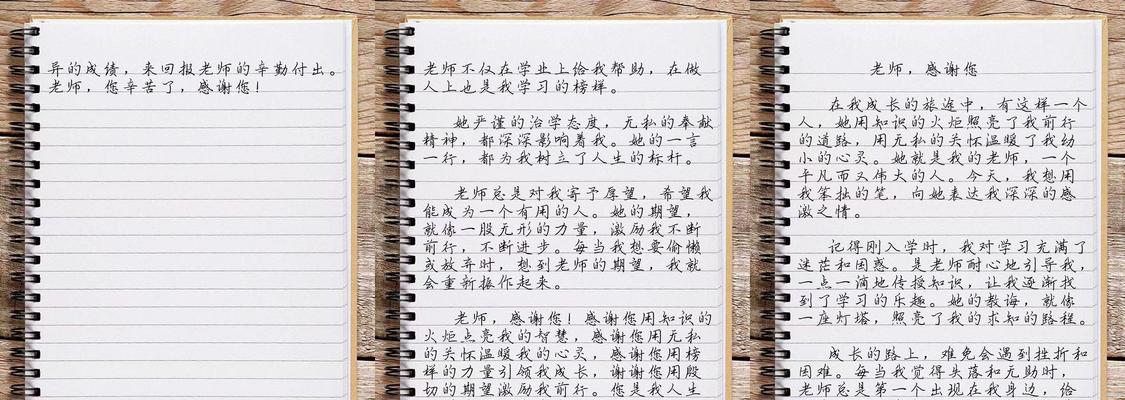 异的成绩，来回报老师的辛勤付出。
老师，您辛苦了，感谢您！
老师不仅在学业上给我帮助，在做
人上也是我学习的榜样。
她严谨的治学态度，无私的奉献
精神，都深深影响着我。她的一言
一行，都为我树立了人生的标杆。
老师总是对我寄予厚望，希望我
能成为一个有用的人。她的期望，
就像一股无形的力量，激励我不断
前行，不断进步。每当我想要偷懒
或放弃时，想到老师的期望，我就
会重新振作起来。
老师，感谢您！感谢您用知识的
火炬点亮我的智慧，感谢您用无私
的关怀温暖我的心灵，感谢您用榜
样的力量引领我成长，谢谢您用殷
切的期望激励我前行。您是我人生
老师，感谢您
在我成长的旅途中，有这样一个
人，她用知识的火炬照亮了我前行
的道路，用无私的关怀温暖了我幼
小的心灵。她就是我的老师，一个
平凡而又伟大的人。今天，我想用
我笨拙的笔，向她表达我深深的感
激之情。
记得刚入学时，我对学习充满了
迷茫和困惑。是老师耐心地引导我，
一点一滴地传授知识，让我逐渐找
到了学习的乐趣。她的教诲，就像
一座灯塔，照亮了我的求知的路程。
成长的路上，难免会遇到挫折和
困难。每当我觉得失落和无助时，
老师总是第一个出现在我身边，给